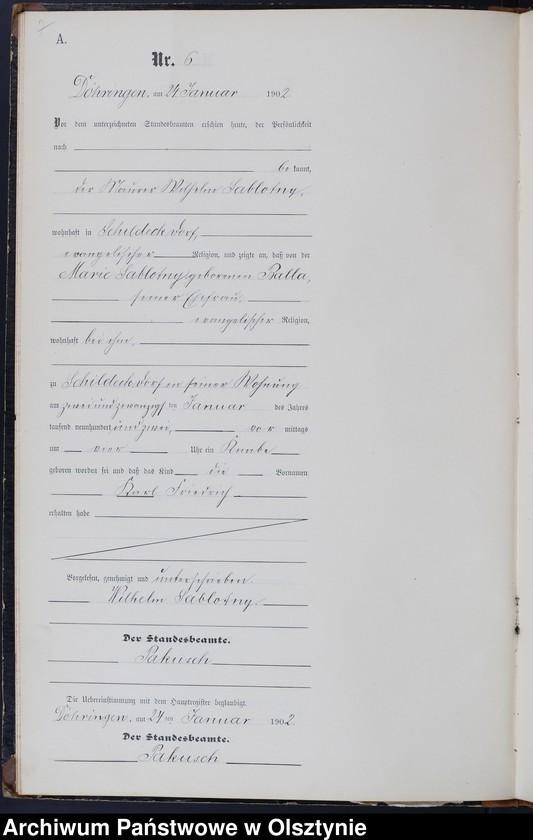 A.
Nr. 6
Döhringen, am 24 Januar 1902
Vor dem unterzeichneten Standesbeamten erschien heute, der Persönlichkeit
nach
bekannt,
der Maurer Wilhelm Sablotny,
wohnhaft in Schildeck dorf,
evangelischer Religion, und zeigte an, daß von der
Marie Sablotny geborenen Balla,
seiner Ehefrau,
evangelischer Religion,
wohnhaft bei ihm,
zu Schildeck dorf in seiner Wohnung
am zweiundzwanzigsten Januar des Jahres
tausend neunhundert und zwei, vor mittags
um vier Uhr ein Knabe
geboren worden sei und daß das Kind die Vornamen
Karl Friedrich
erhalten habe
Vorgelesen, genehmigt und unterschrieben.
Wilhelm Sablotny.
Der Standesbeamte.
Pakusch
Die Uebereinstimmung mit dem Hauptregister beglaubigt.
Döhringen, am 24 ten Januar 1902
Der Standesbeamte.
Pakusch
Archiwum Państwowe w Olsztynie